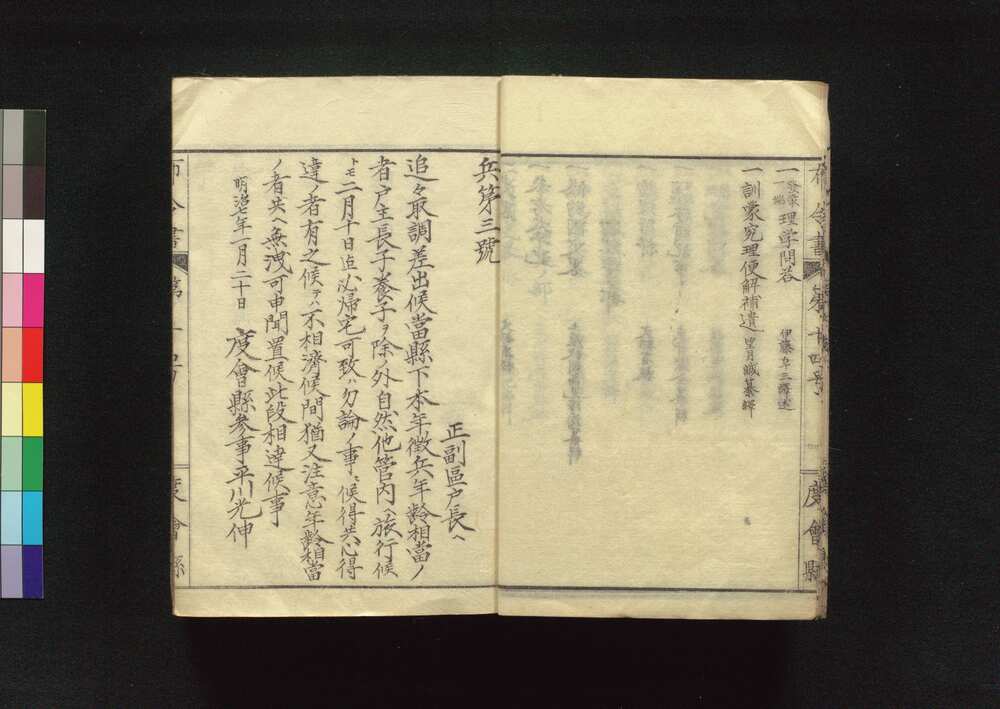 布令書 第十四号 度會縣
一 啓蒙 理学問答 伊藤卓三譯述
一訓蒙究理便解補遺 望月誠纂輯
兵第三號
正副區戸長ヘ
追々取調差出候當縣下本年徴兵年齢相當ノ
者戸主長子養子ヲ除ノ外自然他管内ヘ旅行候
トモ二月十日迄必帰宅可致ハ勿論ノ事ニ候得共心得
違ノ者有之候テハ不相濟候間猶又注意年齢相當
ノ者共ヘ無洩可申聞置候此段相違候事
明治七年一月二十日
度會縣参事平川光伸
布令書 第 度會縣